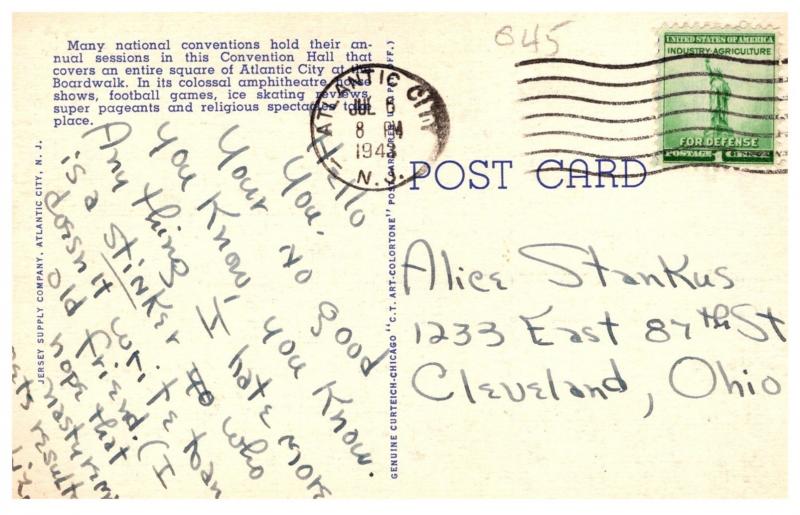 Many national conventions hold their an-
nual sessions in this Convention Hall that
covers an entire square of Atlantic City at the
Boardwalk. In its colossal amphitheatre horse
shows, football games, ice skating reviews,
super pageants and religious spectacles take
place.
JERSEY SUPPLY COMPANY, ATLANTIC CITY, N. J.
Hello
You. No good
Your You Know.
You Know, I hate more
Any thing who
is a stinker to
doesn't write
old friend. (I
hope that
nasty rem
gets result
GENUINE CURTEICH-CHICAGO "C. T. ART-COLORTONE" POST CARD (REG. U.S. PAT. OFF.)
645
ATLANTIC CITY
JUL 6
8 PM
194
N.J.
UNITED STATES OF AMERICA
INDUSTRY·AGRICULTURE
FOR DEFENSE
POSTAGE 1 CENT
POST CARD
Alice Stankus
1233 East 87th St
Cleveland, Ohio